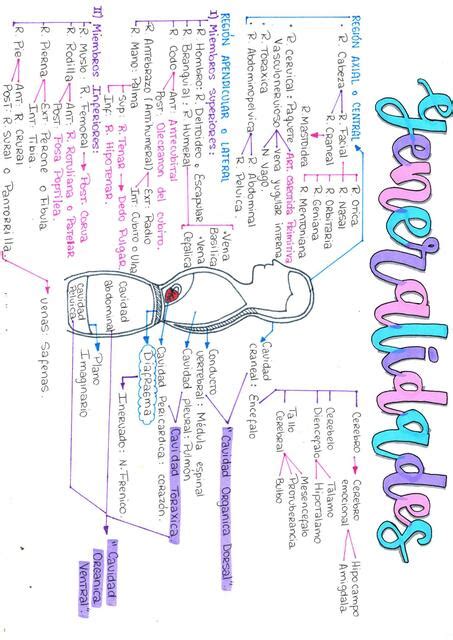 Generalidades
REGIÓN AXIAL o CENTRAL
R. Cabeza
R. Facial
R. Orica
R. Nasal
R. Orbitaria
R. Geniana
R. Mentoniana
R. Craneal
R. Mastoidea
R. Cervical: Paquete Vasculonervioso
Art. carotida Primitiva
Vena yugular interna
N. Vago.
R. Toraxica
R. Abdominopelvica
R. Abdominal
R. Pelvica.
REGIÓN APENDICULAR o LATERAL
I) Miembros superiores:
R. Hombro: R. Deltoideo o Escapular
R. Branquial: R. Humeral
Vena Basilica
Vena Cefalica
R. Codo
Ant: Antecubitral
Post: Olecranon del cubito.
R. Antebrazo (Antihumeral)
Ext: Radio
Int: Cubito o Ulna
R. Mano: Palma
Sup: R. Tenar
Dedo Pulgar
Inf: R. Hipotenar.
II) Miembros Inferiores:
R. Muslo: R. Femoral
R. Rodilla
Ant: R. Rotuliana o Patelar
Post: Fosa Poplitea.
R. Pierna
Ext: Perone o Fibula
Int: Tibia
R. Pie
Ant: R. Crural
Post: R. Sural o Pantorrilla
venas: Safenas.
Cavidad craneal: Encefalo
Cerebro
Cerebro emocional
Hipocampo
Amigdala.
Cerebelo
Diencefalo
Tálamo
Hipotalamo
Tallo Cerebral
Mesencefalo
Protuberancia
Bulbo
Conducto vertebral: Médula espinal
"Cavidad Organica Dorsal".
Cavidad pleural: Pulmón
Cavidad Pericardica: corazón.
Cavidad Toraxica
Diafragma
Inervado: N. Frenico.
Cavidad abdominal
Cavidad Pelvica
Plano Imaginario
"Cavidad Organica Ventral".